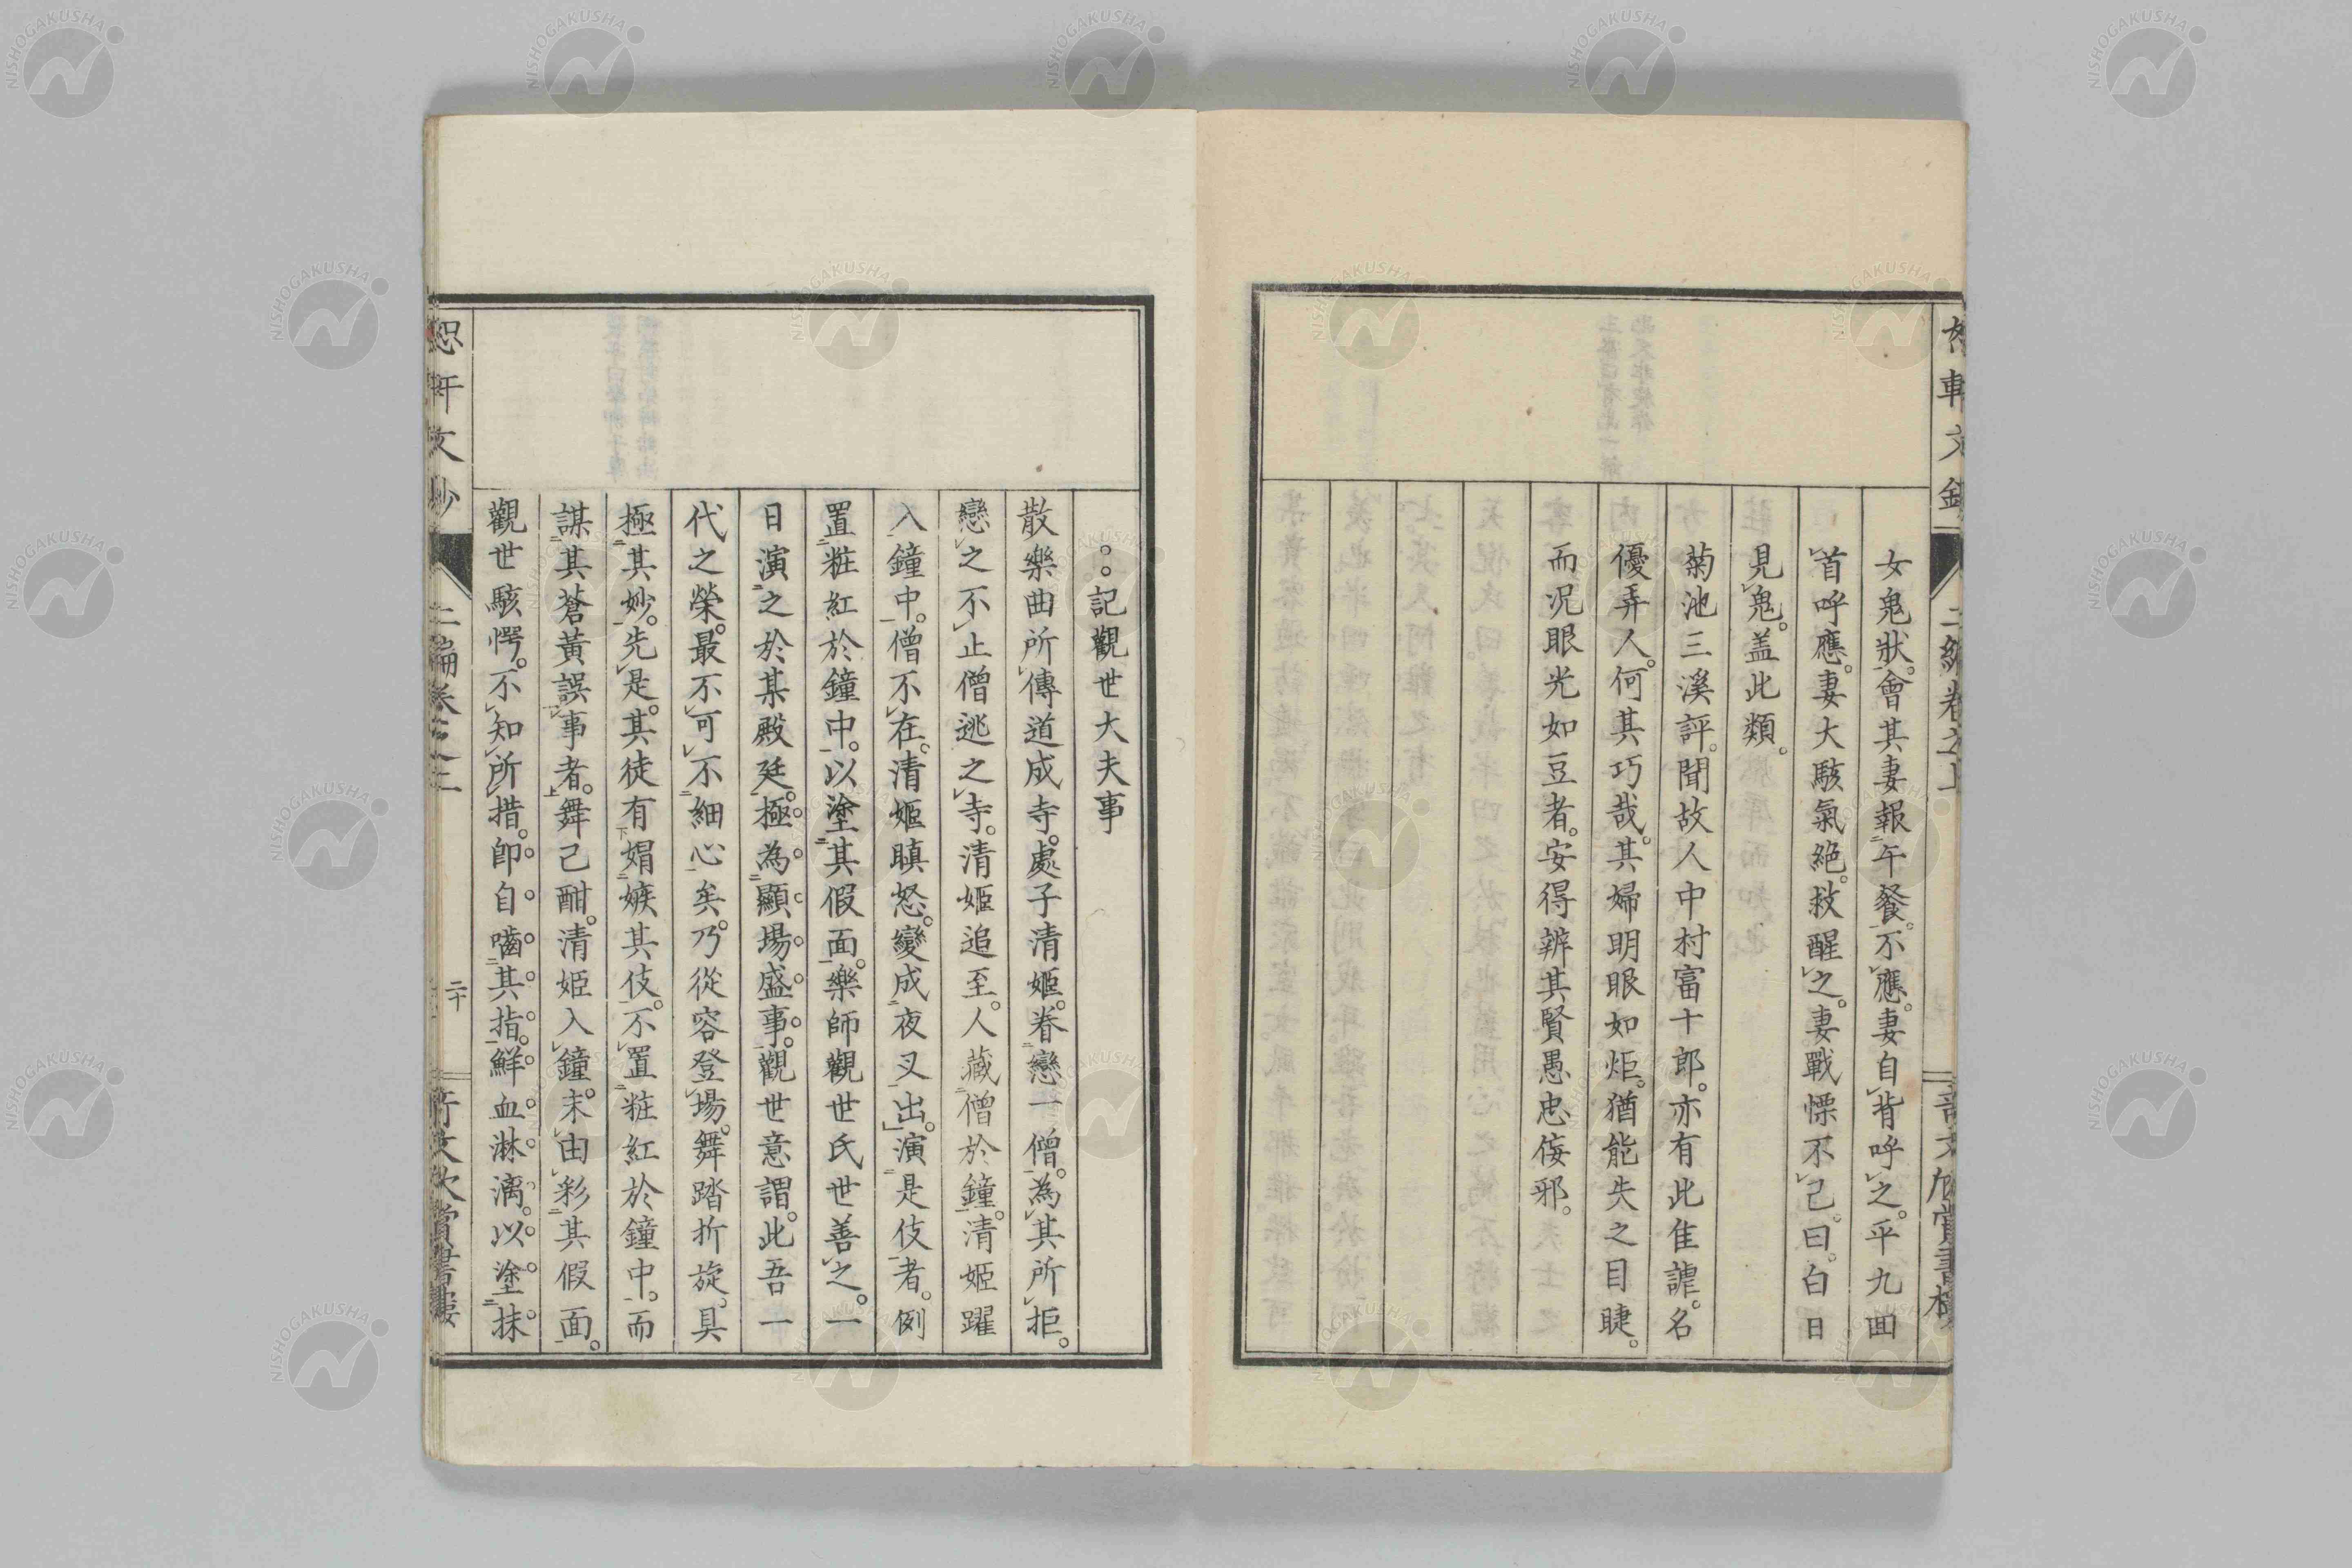 女鬼狀。會其妻報午餐。不應。妻自背呼之。平九回
首呼應。妻大駭氣絕。救醒之。妻戰慄不已。曰。白日
見鬼。盖此類。
菊池三溪評。聞故人中村富十郎。亦有此佳謔。名
優弄人。何其巧哉。其婦明眼如炬。猶能失之目睫。
而況眼光如豆者。安得辨其賢愚忠侫邪。
記觀世大夫事
散樂曲所傳道成寺。處子清姬。眷戀一僧。為其所拒。
戀之不止僧逃之寺。清姬追至。人藏僧於鐘。清姬躍
入鐘中。僧不在。清姬瞋怒。變成夜叉出。演是伎者。例
置粧紅於鐘中。以塗其假面。樂師觀世氏世善之。一
日演之於某殿廷。極為顯場盛事。觀世意謂。此吾一
代之榮。最不可不細心矣。乃從容登場。舞踏折旋。具
極其妙。先是。其徒有娟嫉其伎。不置粧紅於鐘中。而
謀其蒼黃誤事者。舞已酣。清姬入鐘。末由彩其假面。
觀世駭愕。不知所措。卽自嚙其指。鮮血淋漓。以塗抹
二十
NISHOGAKUSHA